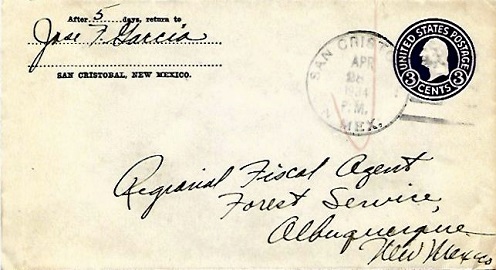 After 5 days, return to
Jose T. Garcia
SAN CRISTOBAL, NEW MEXICO.
SAN CRISTO
APR
26
1934
P.M.
N. MEX.
UNITED STATES POSTAGE
3 3
CENTS
Regional Fiscal Agent
Forest Service,
Albuquerque
New Mexico